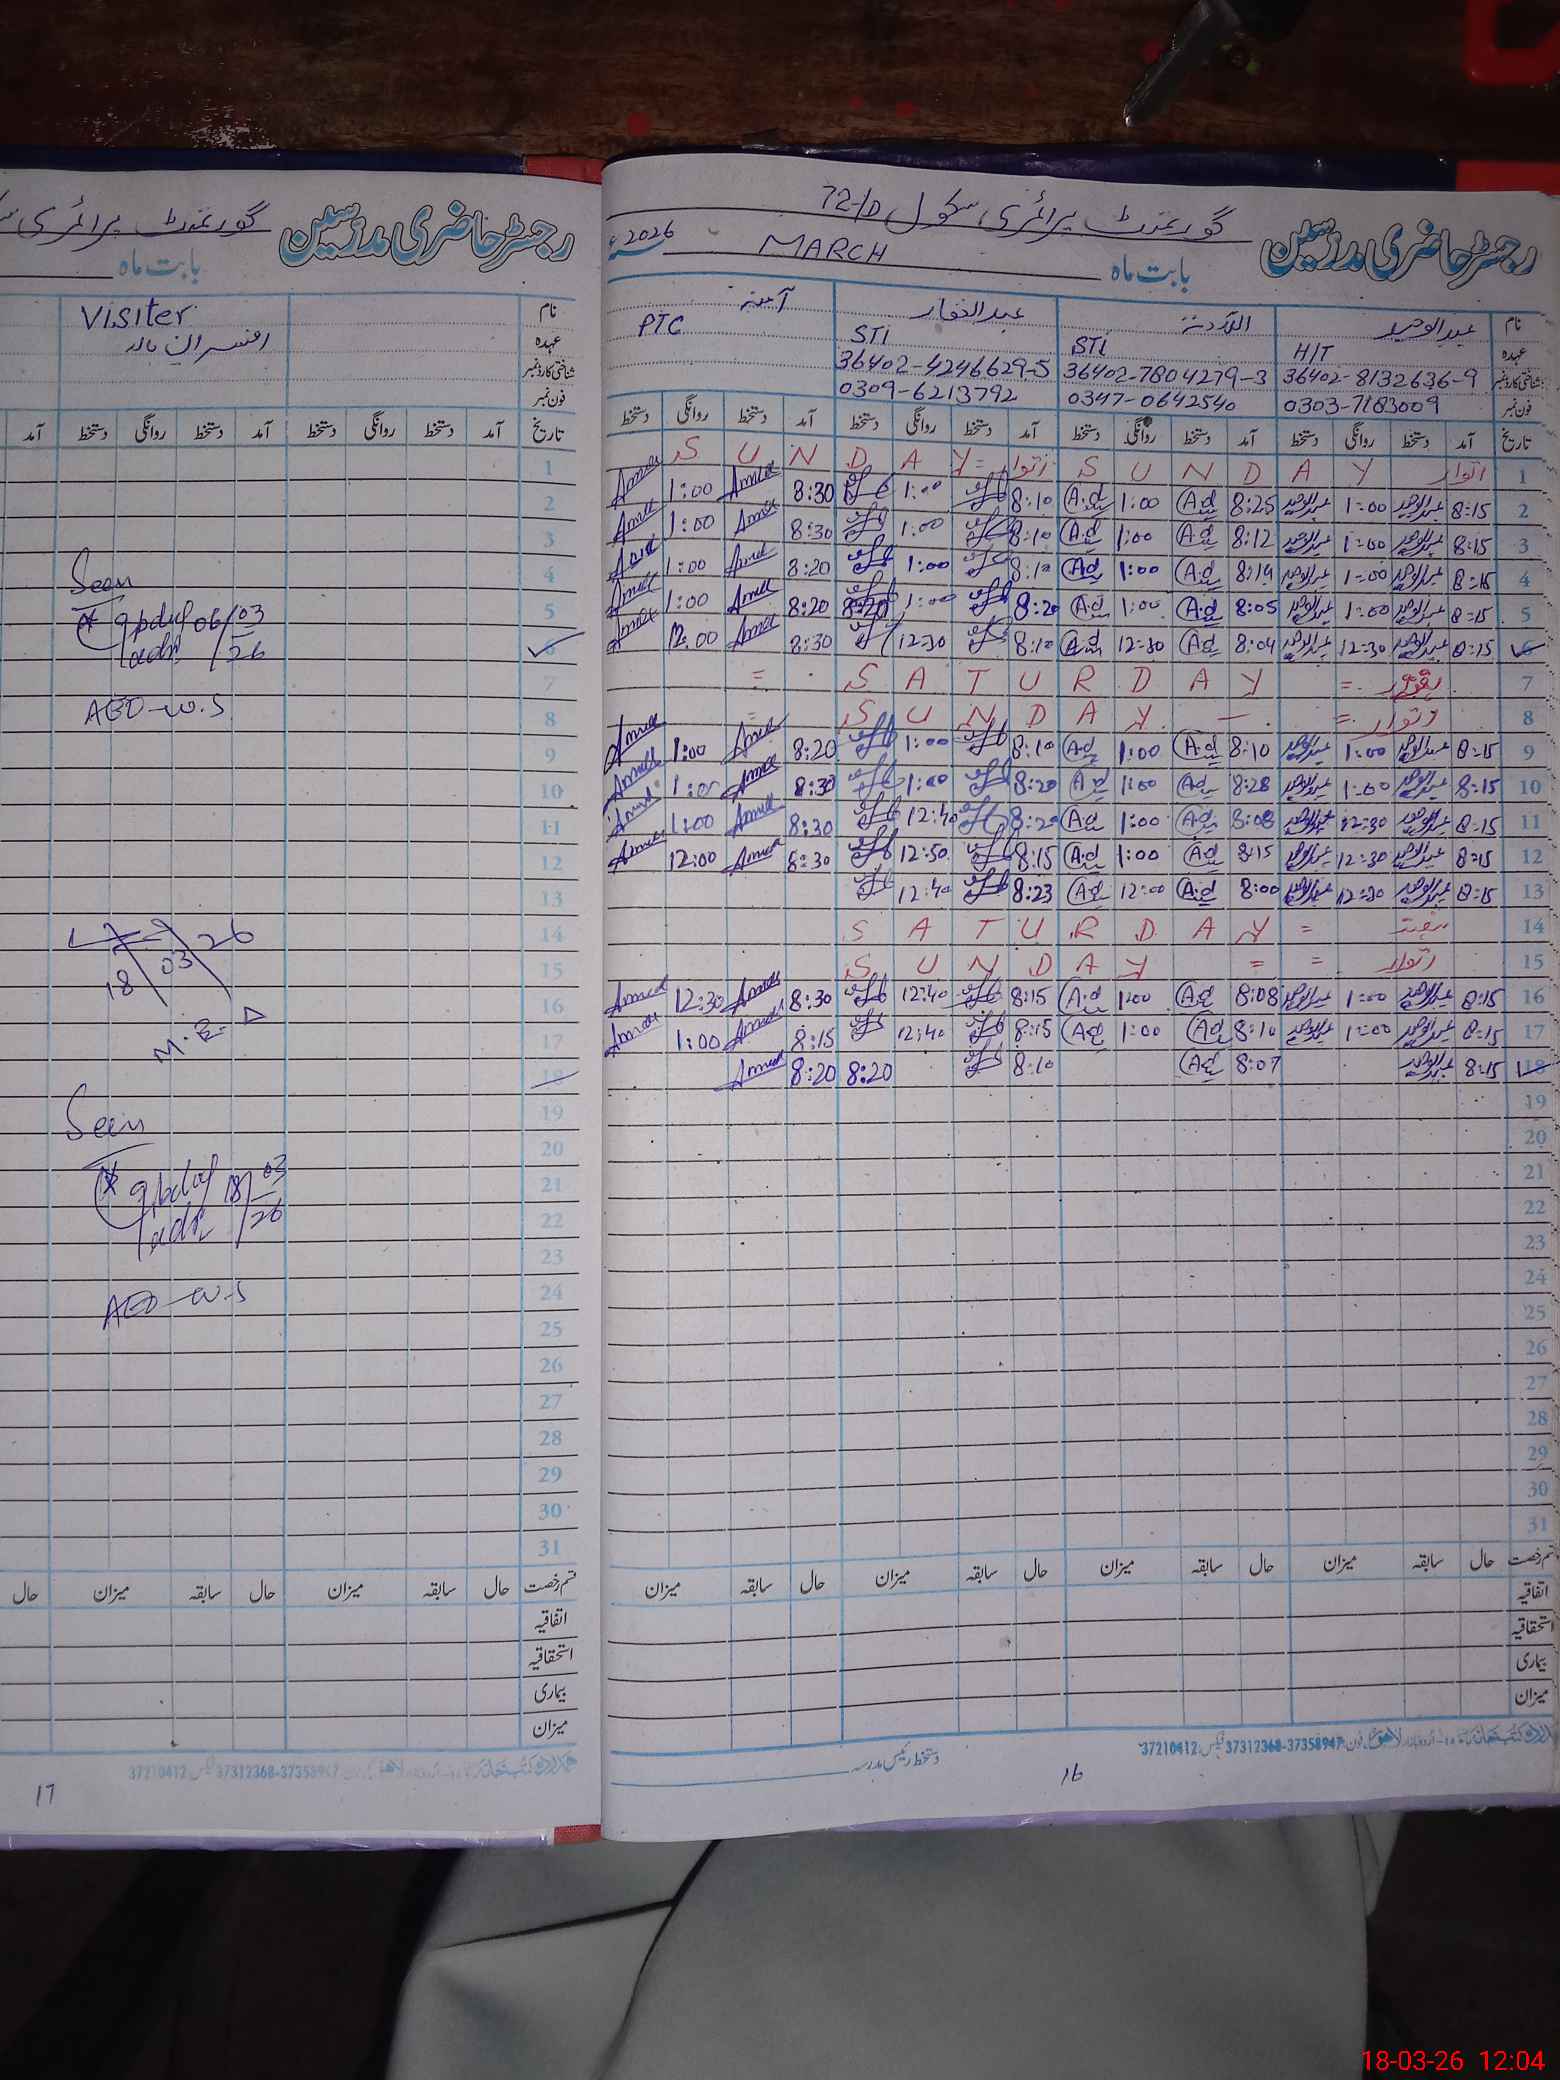 رجسٹر حاضری مدرسین گورنمنٹ پرائمری سکول 72/D
بابت ماہ MARCH 2026ء
نام عبدالوحید عبدالغفار آمنہ
عہدہ H/T STI STI PTC
شناختی کارڈ نمبر 36402-8132636-9 36402-7804279-3 36402-4246629-5
فون نمبر 0303-7183009 0347-0642540 0309-6213792
تاریخ آمد دستخط روانگی دستخط آمد دستخط روانگی دستخط آمد دستخط روانگی دستخط آمد دستخط روانگی دستخط
1 اتوار SUNDAY اتوار = SUNDAY
2 8:15 عبدالوحید 1:00 عبدالوحید 8:25 A.d 1:00 A.d 8:10 1:00 8:30 1:00
3 8:15 عبدالوحید 1:00 عبدالوحید 8:12 A.d 1:00 A.d 8:10 1:00 8:30 1:00
4 8:15 عبدالوحید 1:00 عبدالوحید 8:19 A.d 1:00 A.d 8:10 1:00 8:20 1:00
5 8:15 عبدالوحید 1:00 عبدالوحید 8:05 A.d 1:00 A.d 8:20 1:00 8:20 8:20 1:00
6 8:15 عبدالوحید 12:30 عبدالوحید 8:04 A.d 12:30 A.d 8:10 12:30 8:30 12:00
7 = SATURDAY =
8 اتوار = SUNDAY =
9 8:15 عبدالوحید 1:00 عبدالوحید 8:10 A.d 1:00 A.d 8:10 1:00 8:20 1:00
10 8:15 عبدالوحید 1:00 عبدالوحید 8:28 A.d 1:00 A.d 8:20 1:00 8:30 1:00
11 8:15 عبدالوحید 12:30 عبدالوحید 8:08 A.d 1:00 A.d 8:20 12:40 8:30 1:00
12 8:15 عبدالوحید 12:30 عبدالوحید 8:15 A.d 1:00 A.d 8:15 12:50 8:30 12:00
13 8:15 عبدالوحید 12:30 عبدالوحید 8:00 A.d 12:00 A.d 8:23 12:40
14 ہفتہ = SATURDAY
15 اتوار = = SUNDAY
16 8:15 عبدالوحید 1:00 عبدالوحید 8:08 A.d 1:00 A.d 8:15 12:40 8:30 12:30
17 8:15 عبدالوحید 1:00 عبدالوحید 8:10 A.d 1:00 A.d 8:15 12:40 8:15 1:00
18 8:15 عبدالوحید 8:07 A.d 8:10 8:20 8:20
19
20
21
22
23
24
25
26
27
28
29
30
31
قسم رخصت حال سابقہ میزان حال سابقہ میزان حال سابقہ میزان حال سابقہ میزان
اتفاقیہ
استحقاقیہ
بیماری
میزان
37210412 فیکس 37312368-37358947
دستخط رئیس مدرسہ
16
رجسٹر حاضری مدرسین گورنمنٹ پرائمری
بابت ماہ
نام Visiter
عہدہ افسران بالا
شناختی کارڈ نمبر
فون نمبر
تاریخ آمد دستخط روانگی دستخط آمد دستخط روانگی دستخط آمد
1
2
3
4 Seen
5 06/03/26
6
7
8 AEO-W.S
9
10
11
12
13
14
15 18/03/26
16
17 M.E.A
18
19 Seen
20
21 18/03/26
22
23
24 AEO-W.S
25
26
27
28
29
30
31
قسم رخصت حال سابقہ میزان حال سابقہ میزان حال
اتفاقیہ
استحقاقیہ
بیماری
میزان
37210412 فیکس 37312368-37358947
17
18-03-26 12:04